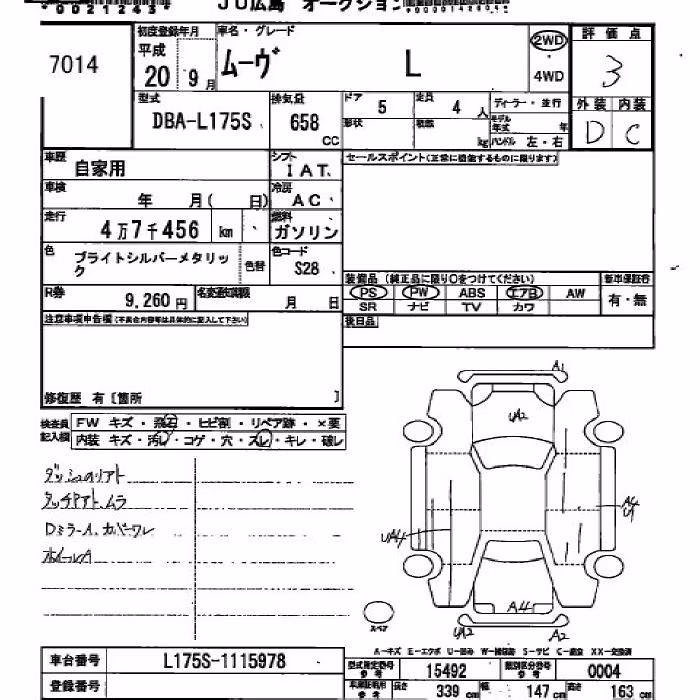 0021243
JU広島 オークション
7014
初度登録年月
平成
20年9月
車名・グレード
ムーヴ L
2WD
4WD
評価点
3
型式
DBA-L175S
排気量
658
CC
ドア
5
定員
4人
形状
積載
kg
ディーラー・並行
モデル年式 年
ハンドル 左・右
外装 内装
D C
車歴
自家用
シフト
IAT
セールスポイント(正常に機能するものに限ります)
車検
年 月( 日)
冷房
AC
走行
4万7千456 km
燃料
ガソリン
色
ブライトシルバーメタリック
色替
色コード
S28
装備品 (純正品に限り○をつけてください)
新車保証書
PS PW ABS エアB AW
有・無
SR ナビ TV カワ
R券
9,260円
名変通知期限
月 日
後日品
注意事項申告欄(不具合内容等は具体的に記入して下さい)
修復歴 有 [箇所 ]
検査員記入欄
FW キズ・飛石・ヒビ割・リペア跡・×要
内装 キズ・汚レ・コゲ・穴・スレ・キレ・破レ
ダッシュのリアト
タッチPアト、ムラ
DミラーA、カバーワレ
ホイールA
A1
UA2
UA4
A4
U1
A4
UA2
A2
スペア
A-キズ E-エクボ U-凹み W-補修跡 S-サビ C-腐食 XX-交換済
車台番号
L175S-1115978
登録番号
型式指定番号
参考
15492
類別区分番号
参考
0004
車庫証明用
参考
長さ 339 cm
幅 147 cm
高さ 163 cm